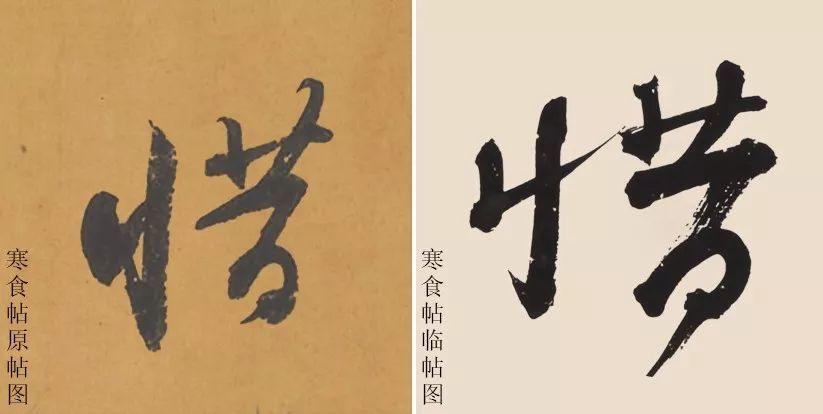 寒食帖原帖图
惜
寒食帖临帖图
惜